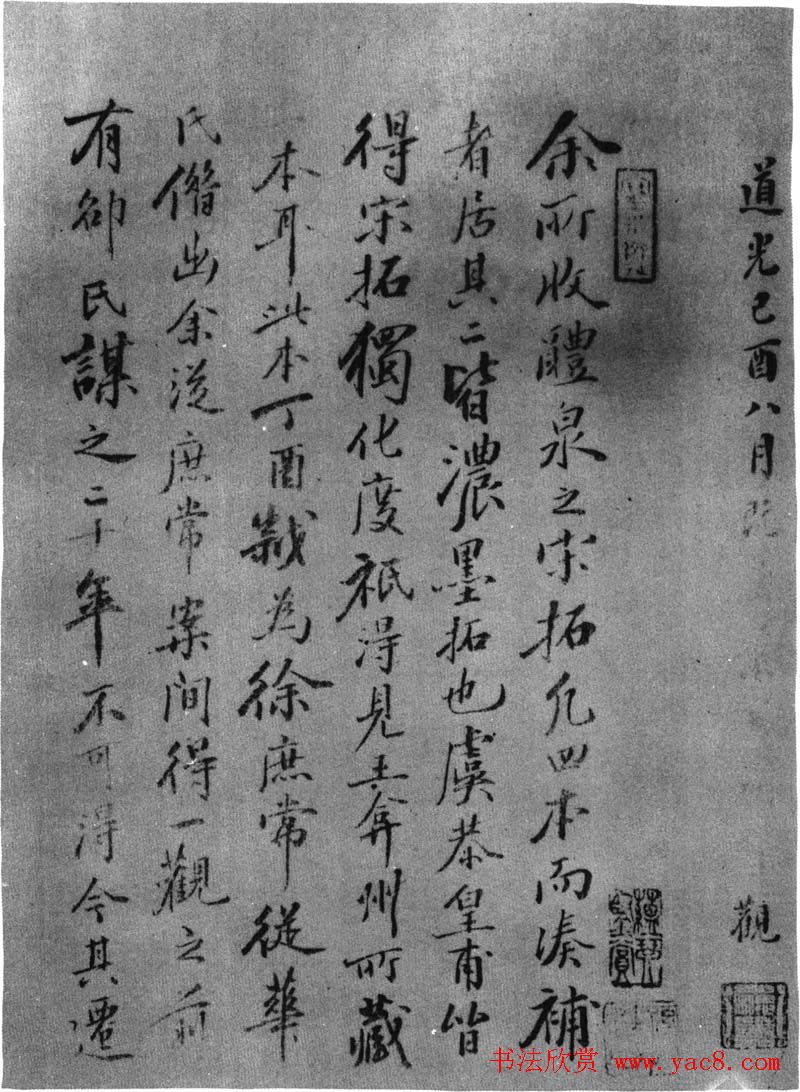 道光己酉八月
觀
余所收醴泉之宋拓凡四本而湊補
者居其二皆濃墨拓也虞恭皇甫皆
得宋拓獨化度祇得見王弇州所藏
本耳此本丁酉歲為徐庶常從華
氏借出余從庶常案間得一觀之前
有卻氏謀之二十年不可得今其遷
书法欣赏 www.yac8.com